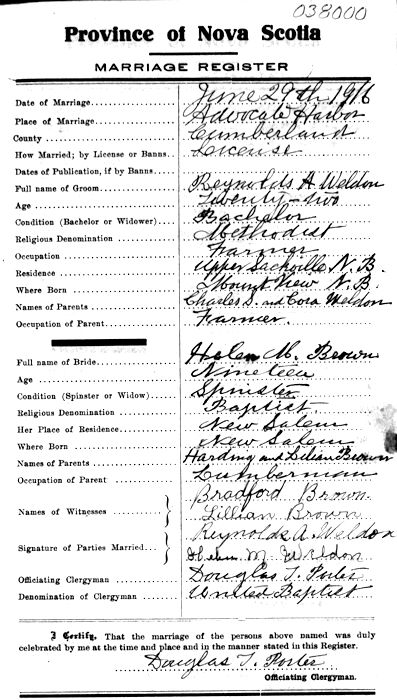 038000
Province of Nova Scotia
MARRIAGE REGISTER
Date of Marriage June 29th 1916
Place of Marriage Advocate Harbor
County Cumberland
How Married; by License or Banns License
Dates of Publication, if by Banns
Full name of Groom Reynolds A Weldon
Age Twenty-two
Condition (Bachelor or Widower) Bachelor
Religious Denomination Methodist
Occupation Farmer
Residence Upper Sackville N.B.
Where Born Mount View N.B.
Names of Parents Charles S. and Cora Weldon
Occupation of Parent Farmer.
Full name of Bride Helen M. Brown
Age Nineteen
Condition (Spinster or Widow) Spinster
Religious Denomination Baptist
Her Place of Residence New Salem
Where Born New Salem
Names of Parents Harding and Lilian Brown
Occupation of Parent Lumberman
Names of Witnesses Bradford Brown.
Lillian Brown
Signature of Parties Married Reynolds A. Weldon
Helen M Weldon
Officiating Clergyman Douglas T. Porter
Denomination of Clergyman United Baptist
I Certify, That the marriage of the persons above named was duly
celebrated by me at the time and place and in the manner stated in this Register.
Douglas T. Porter
Officiating Clergyman.